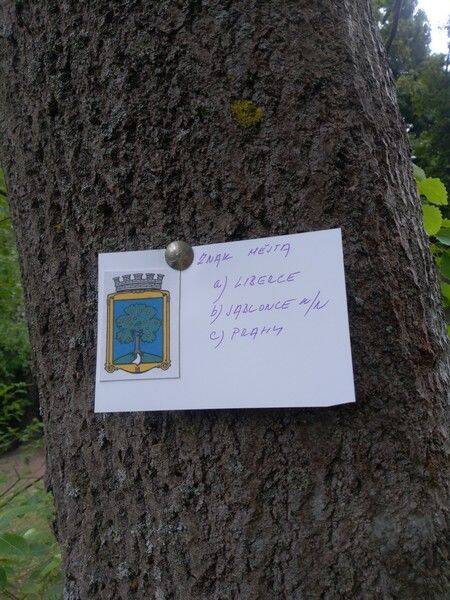 ZNAK MĚSTA
a) LIBERCE
b) JABLONCE N/N
c) PRAHY